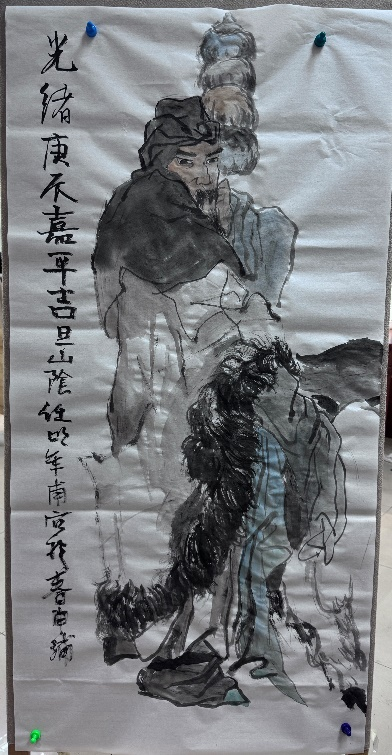 光绪庚辰嘉平吉旦山陰任伯年寫於春申浦